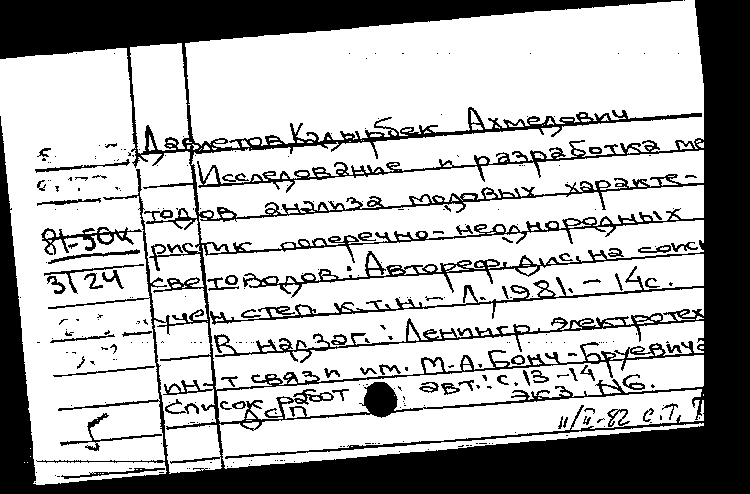 Давлетов, Кадырбек Ахмедович
Исследование и разработка ме
тодов анализа модовых характе-
81-50к ристик поперечно-неоднородных
3124 световодов: Автореф. дис. на соиск
учен. степ. к.т.н. - Л., 1981. - 14с.
В надзаг.: Ленингр. электротех
ин-т связи им. М.А. Бонч-Бруевича
Список работ авт.: с. 13-14
Дсп экз. №6.
11/II-82 с.т.